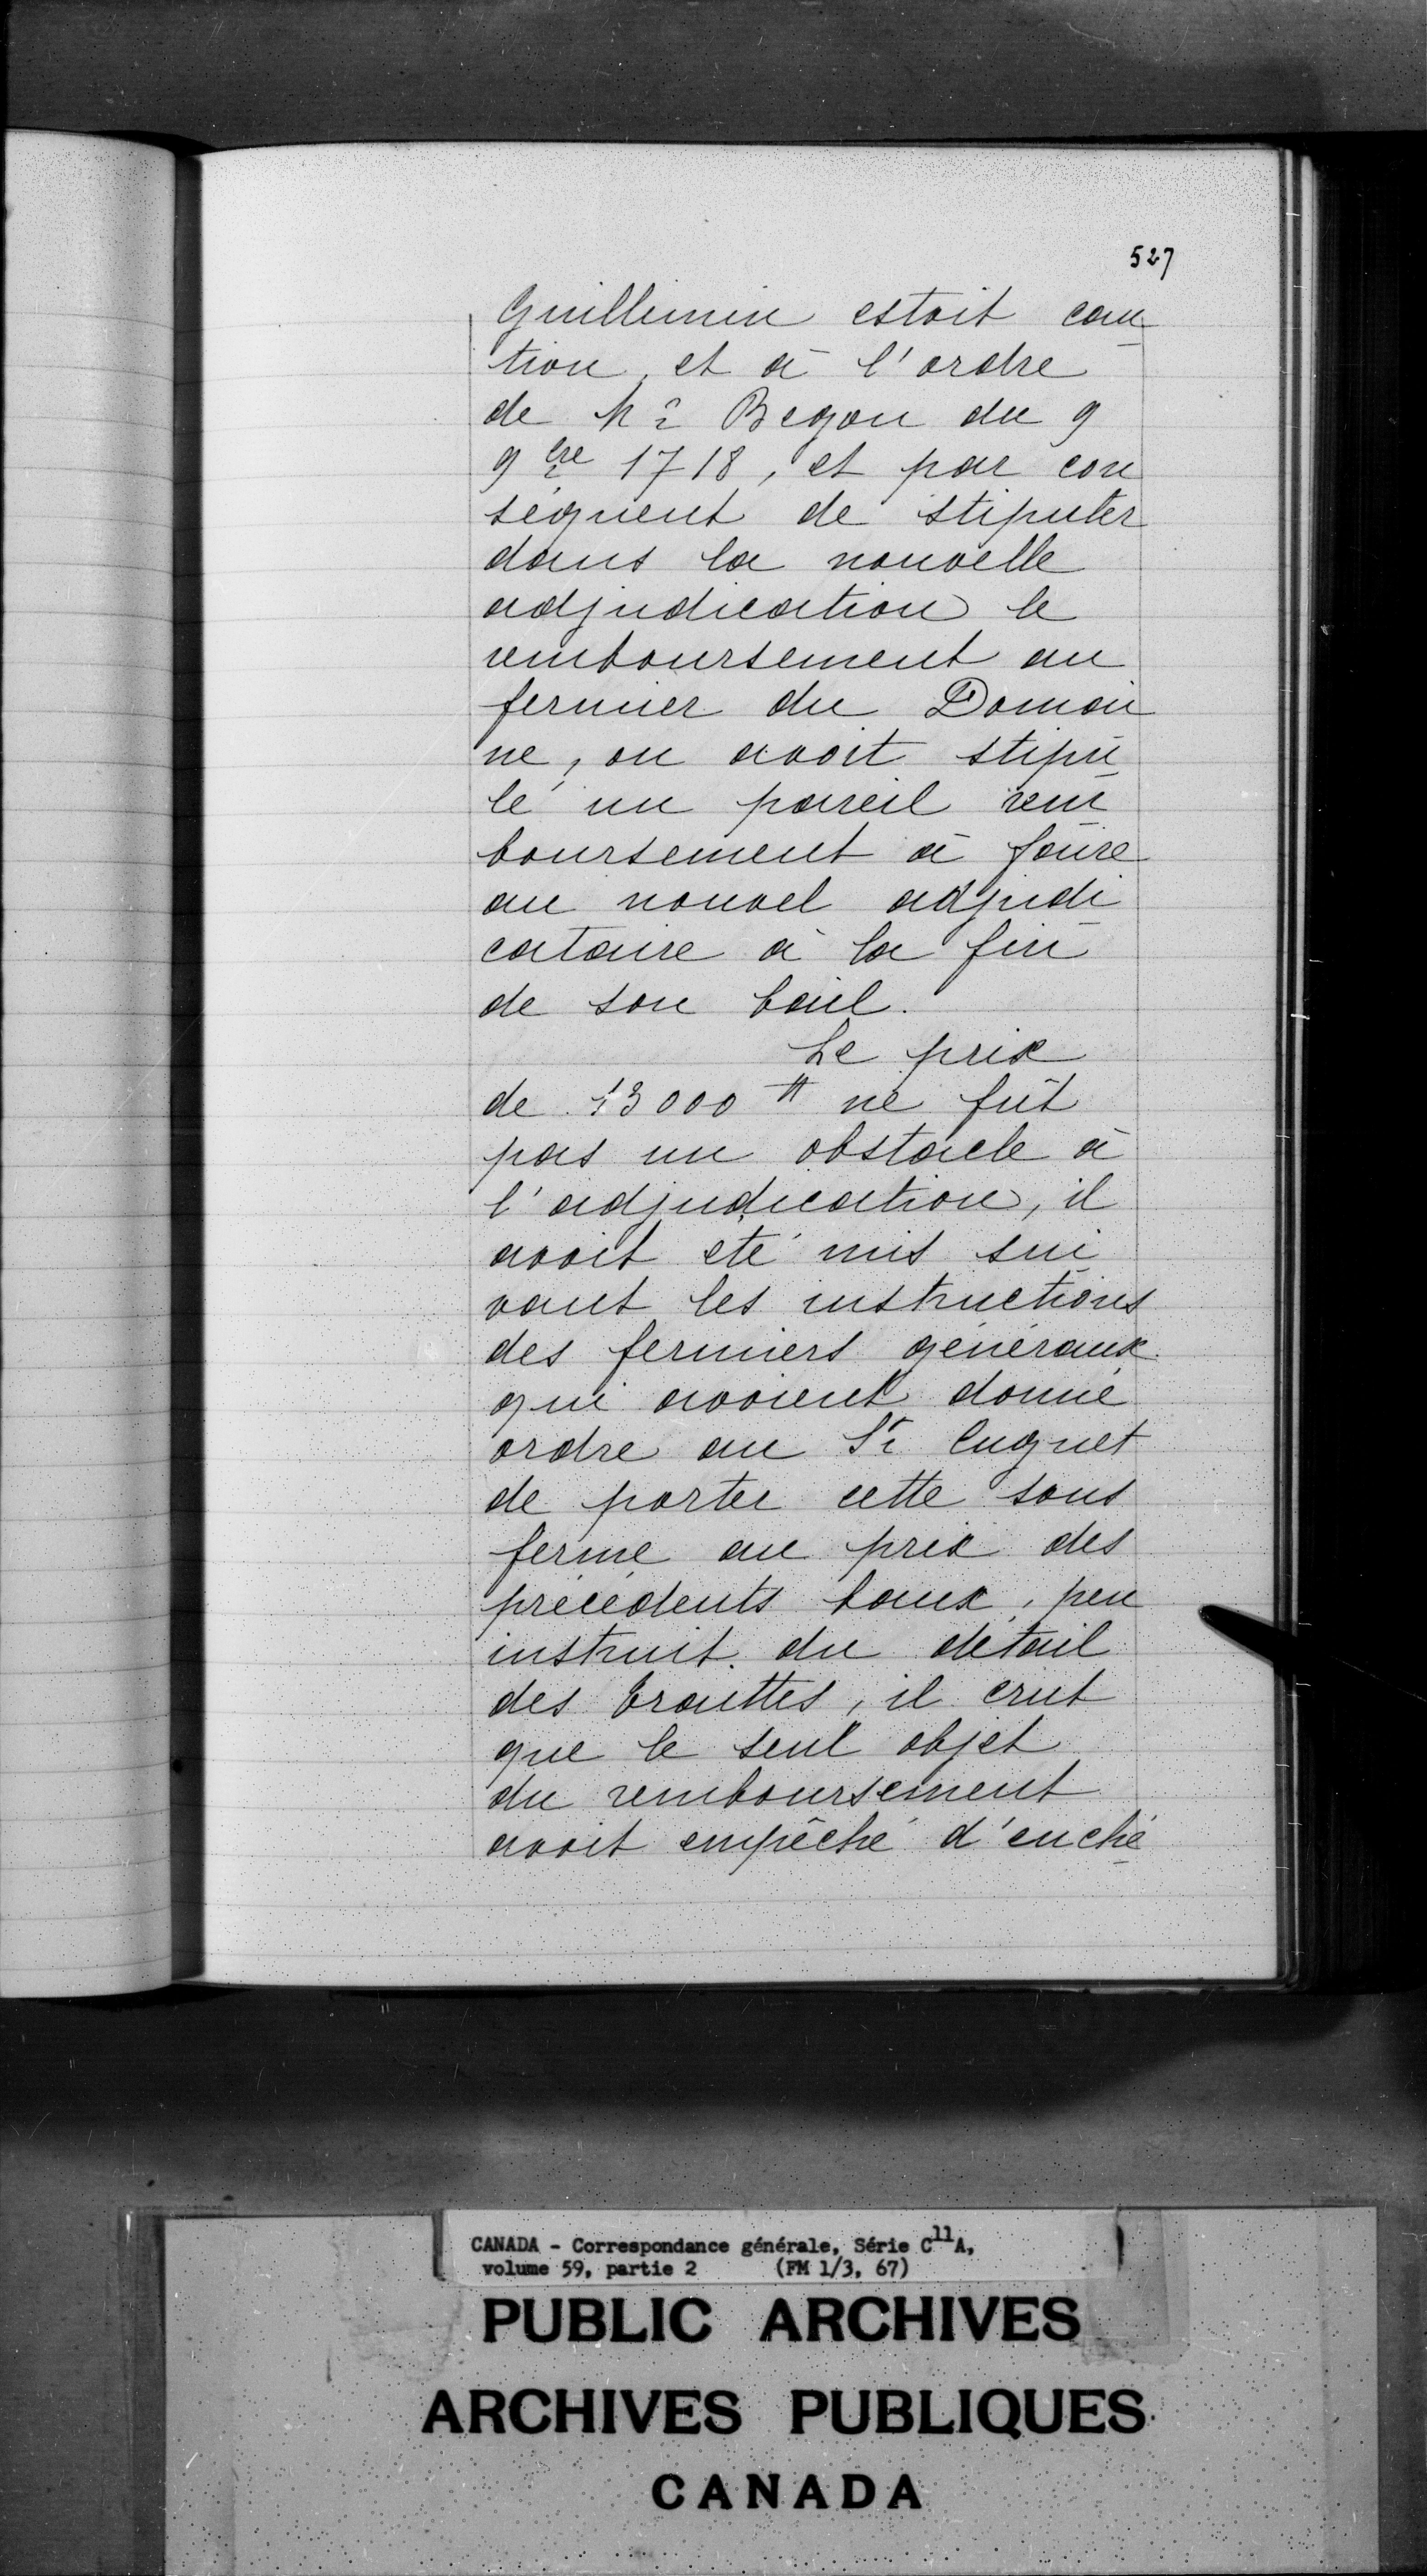 527
Guillimin estoit cau
tion, et à l'ordre
de Mr Begon du 9
9bre 1718, et par con
séquent de stipuler
dans la nouvelle
adjudication le
remboursement au
fermier du Domai
ne, on avoit stipu
lé un pareil rem
boursement à faire
au nouvel adjudi
cataire à la fin
de son bail.
Le prix
de 13000 ₶ ne fut
pas un obstacle à
l'adjudication, il
avoit été mis sui
vant les instructions
des fermiers généraux
qui avoient donné
ordre au Sr Cugnet
de porter cette sous
ferme au prix des
précédents baux, peu
instruit du détail
des traittes, il crut
que le seul objet
du remboursement
avoit empêché d'enché
CANADA - Correspondance générale, Série C11A,
volume 59, partie 2 (FM 1/3, 67)
PUBLIC ARCHIVES
ARCHIVES PUBLIQUES
CANADA